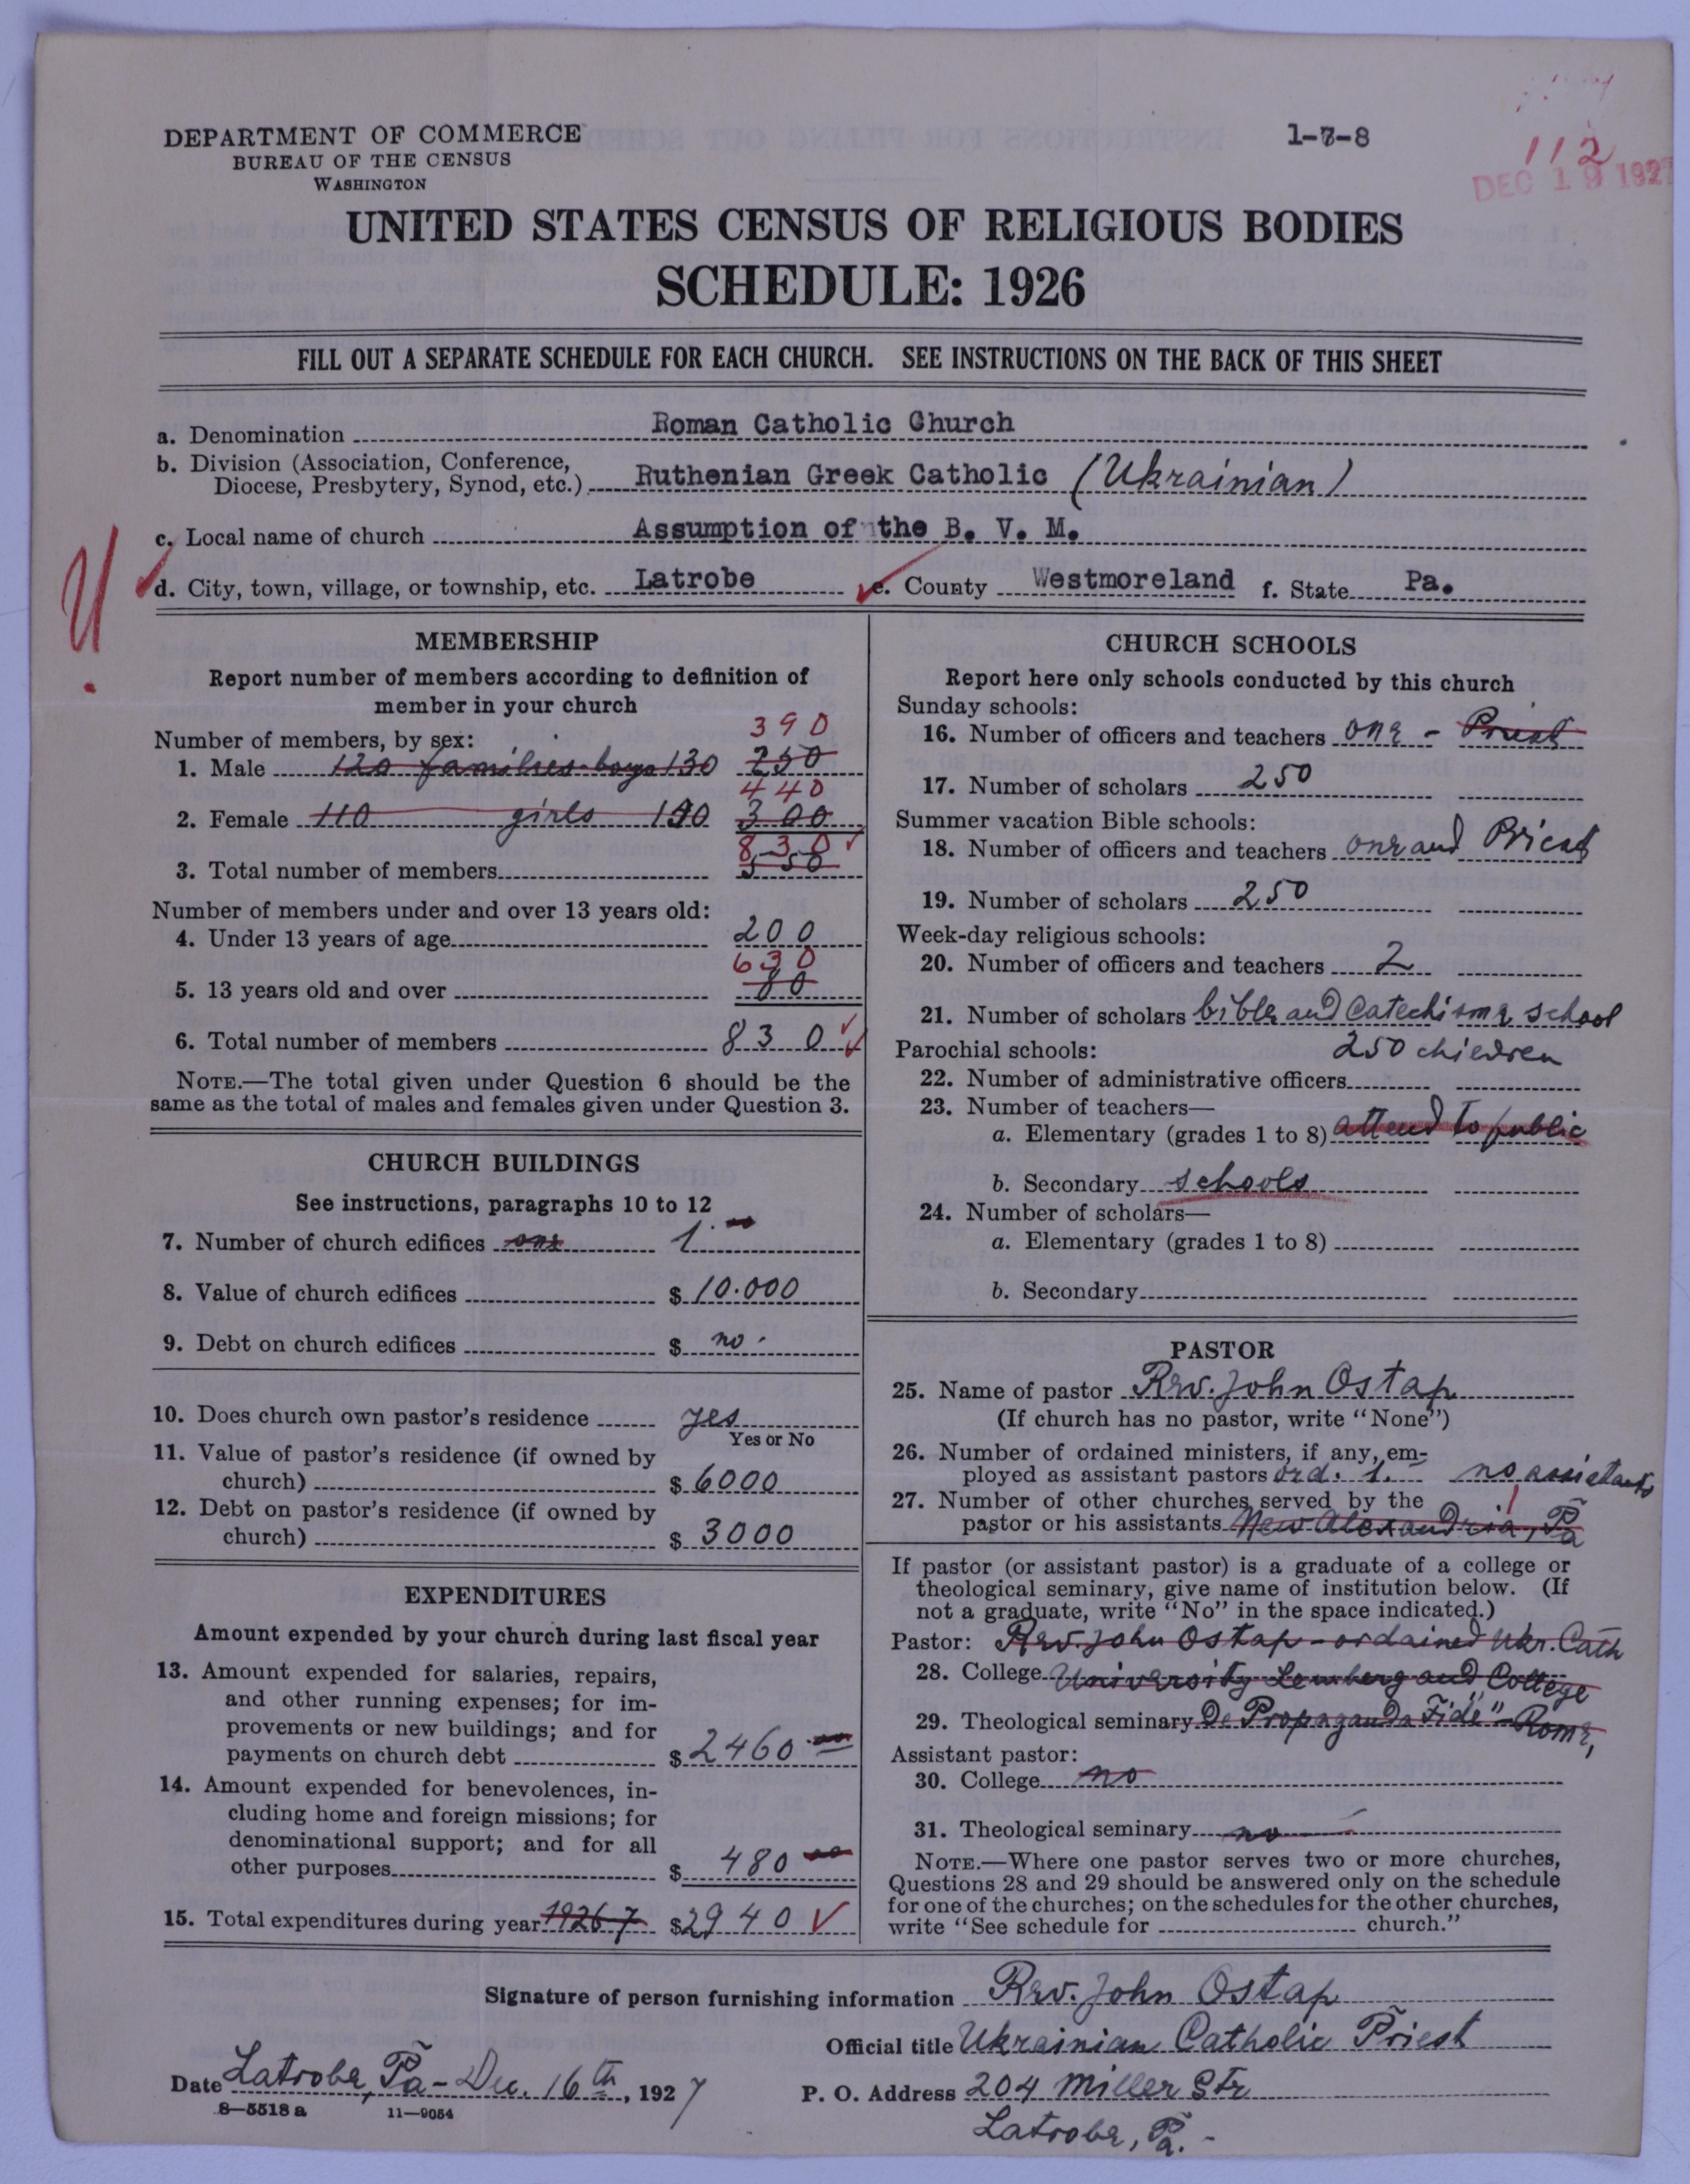 DEPARTMENT OF COMMERCE
BUREAU OF THE CENSUS
WASHINGTON
1-7-8
112
DEC 19 1927
UNITED STATES CENSUS OF RELIGIOUS BODIES
SCHEDULE: 1926
FILL OUT A SEPARATE SCHEDULE FOR EACH CHURCH. SEE INSTRUCTIONS ON THE BACK OF THIS SHEET
a. Denomination Roman Catholic Church
b. Division (Association, Conference, Diocese, Presbytery, Synod, etc.) Ruthenian Greek Catholic (Ukrainian)
c. Local name of church Assumption of the B. V. M.
d. City, town, village, or township, etc. Latrobe e. County Westmoreland f. State Pa.
MEMBERSHIP
Report number of members according to definition of
member in your church
390
Number of members, by sex:
1. Male 120 families boys 130 250
440
2. Female 110 girls 190 300
830
3. Total number of members 550
Number of members under and over 13 years old:
4. Under 13 years of age 200
630
5. 13 years old and over 80
6. Total number of members 830
NOTE.—The total given under Question 6 should be the
same as the total of males and females given under Question 3.
CHURCH BUILDINGS
See instructions, paragraphs 10 to 12
7. Number of church edifices one 1.
8. Value of church edifices $ 10.000
9. Debt on church edifices $ no.
10. Does church own pastor's residence yes
Yes or No
11. Value of pastor's residence (if owned by
church) $ 6000
12. Debt on pastor's residence (if owned by
church) $ 3000
EXPENDITURES
Amount expended by your church during last fiscal year
13. Amount expended for salaries, repairs,
and other running expenses; for im-
provements or new buildings; and for
payments on church debt $ 2460
14. Amount expended for benevolences, in-
cluding home and foreign missions; for
denominational support; and for all
other purposes $ 480
15. Total expenditures during year 1926-7 $ 2940
CHURCH SCHOOLS
Report here only schools conducted by this church
Sunday schools:
16. Number of officers and teachers one - Priest
17. Number of scholars 250
Summer vacation Bible schools:
18. Number of officers and teachers one and Priest
19. Number of scholars 250
Week-day religious schools:
20. Number of officers and teachers 2
21. Number of scholars bible and Catechisme school
Parochial schools: 250 children
22. Number of administrative officers
23. Number of teachers—
a. Elementary (grades 1 to 8) attend to public
b. Secondary schools
24. Number of scholars—
a. Elementary (grades 1 to 8)
b. Secondary
PASTOR
25. Name of pastor Rev. John Ostap
(If church has no pastor, write "None")
26. Number of ordained ministers, if any, em-
ployed as assistant pastors ord. 1. no assistants
27. Number of other churches served by the 1
pastor or his assistants New Alexandria, Pa
If pastor (or assistant pastor) is a graduate of a college or
theological seminary, give name of institution below. (If
not a graduate, write "No" in the space indicated.)
Pastor: Rev. John Ostap - ordained Ukr. Cath
28. College University Lemberg and College
29. Theological seminary De Propaganda Fide" - Rome,
Assistant pastor:
30. College no
31. Theological seminary no
NOTE.—Where one pastor serves two or more churches,
Questions 28 and 29 should be answered only on the schedule
for one of the churches; on the schedules for the other churches,
write "See schedule for church."
Signature of person furnishing information Rev. John Ostap
Official title Ukrainian Catholic Priest
Date Latrobe, Pa - Dec. 16th, 1927 P. O. Address 204 Miller Str
8—5518 a 11—9054
Latrobe, Pa. -